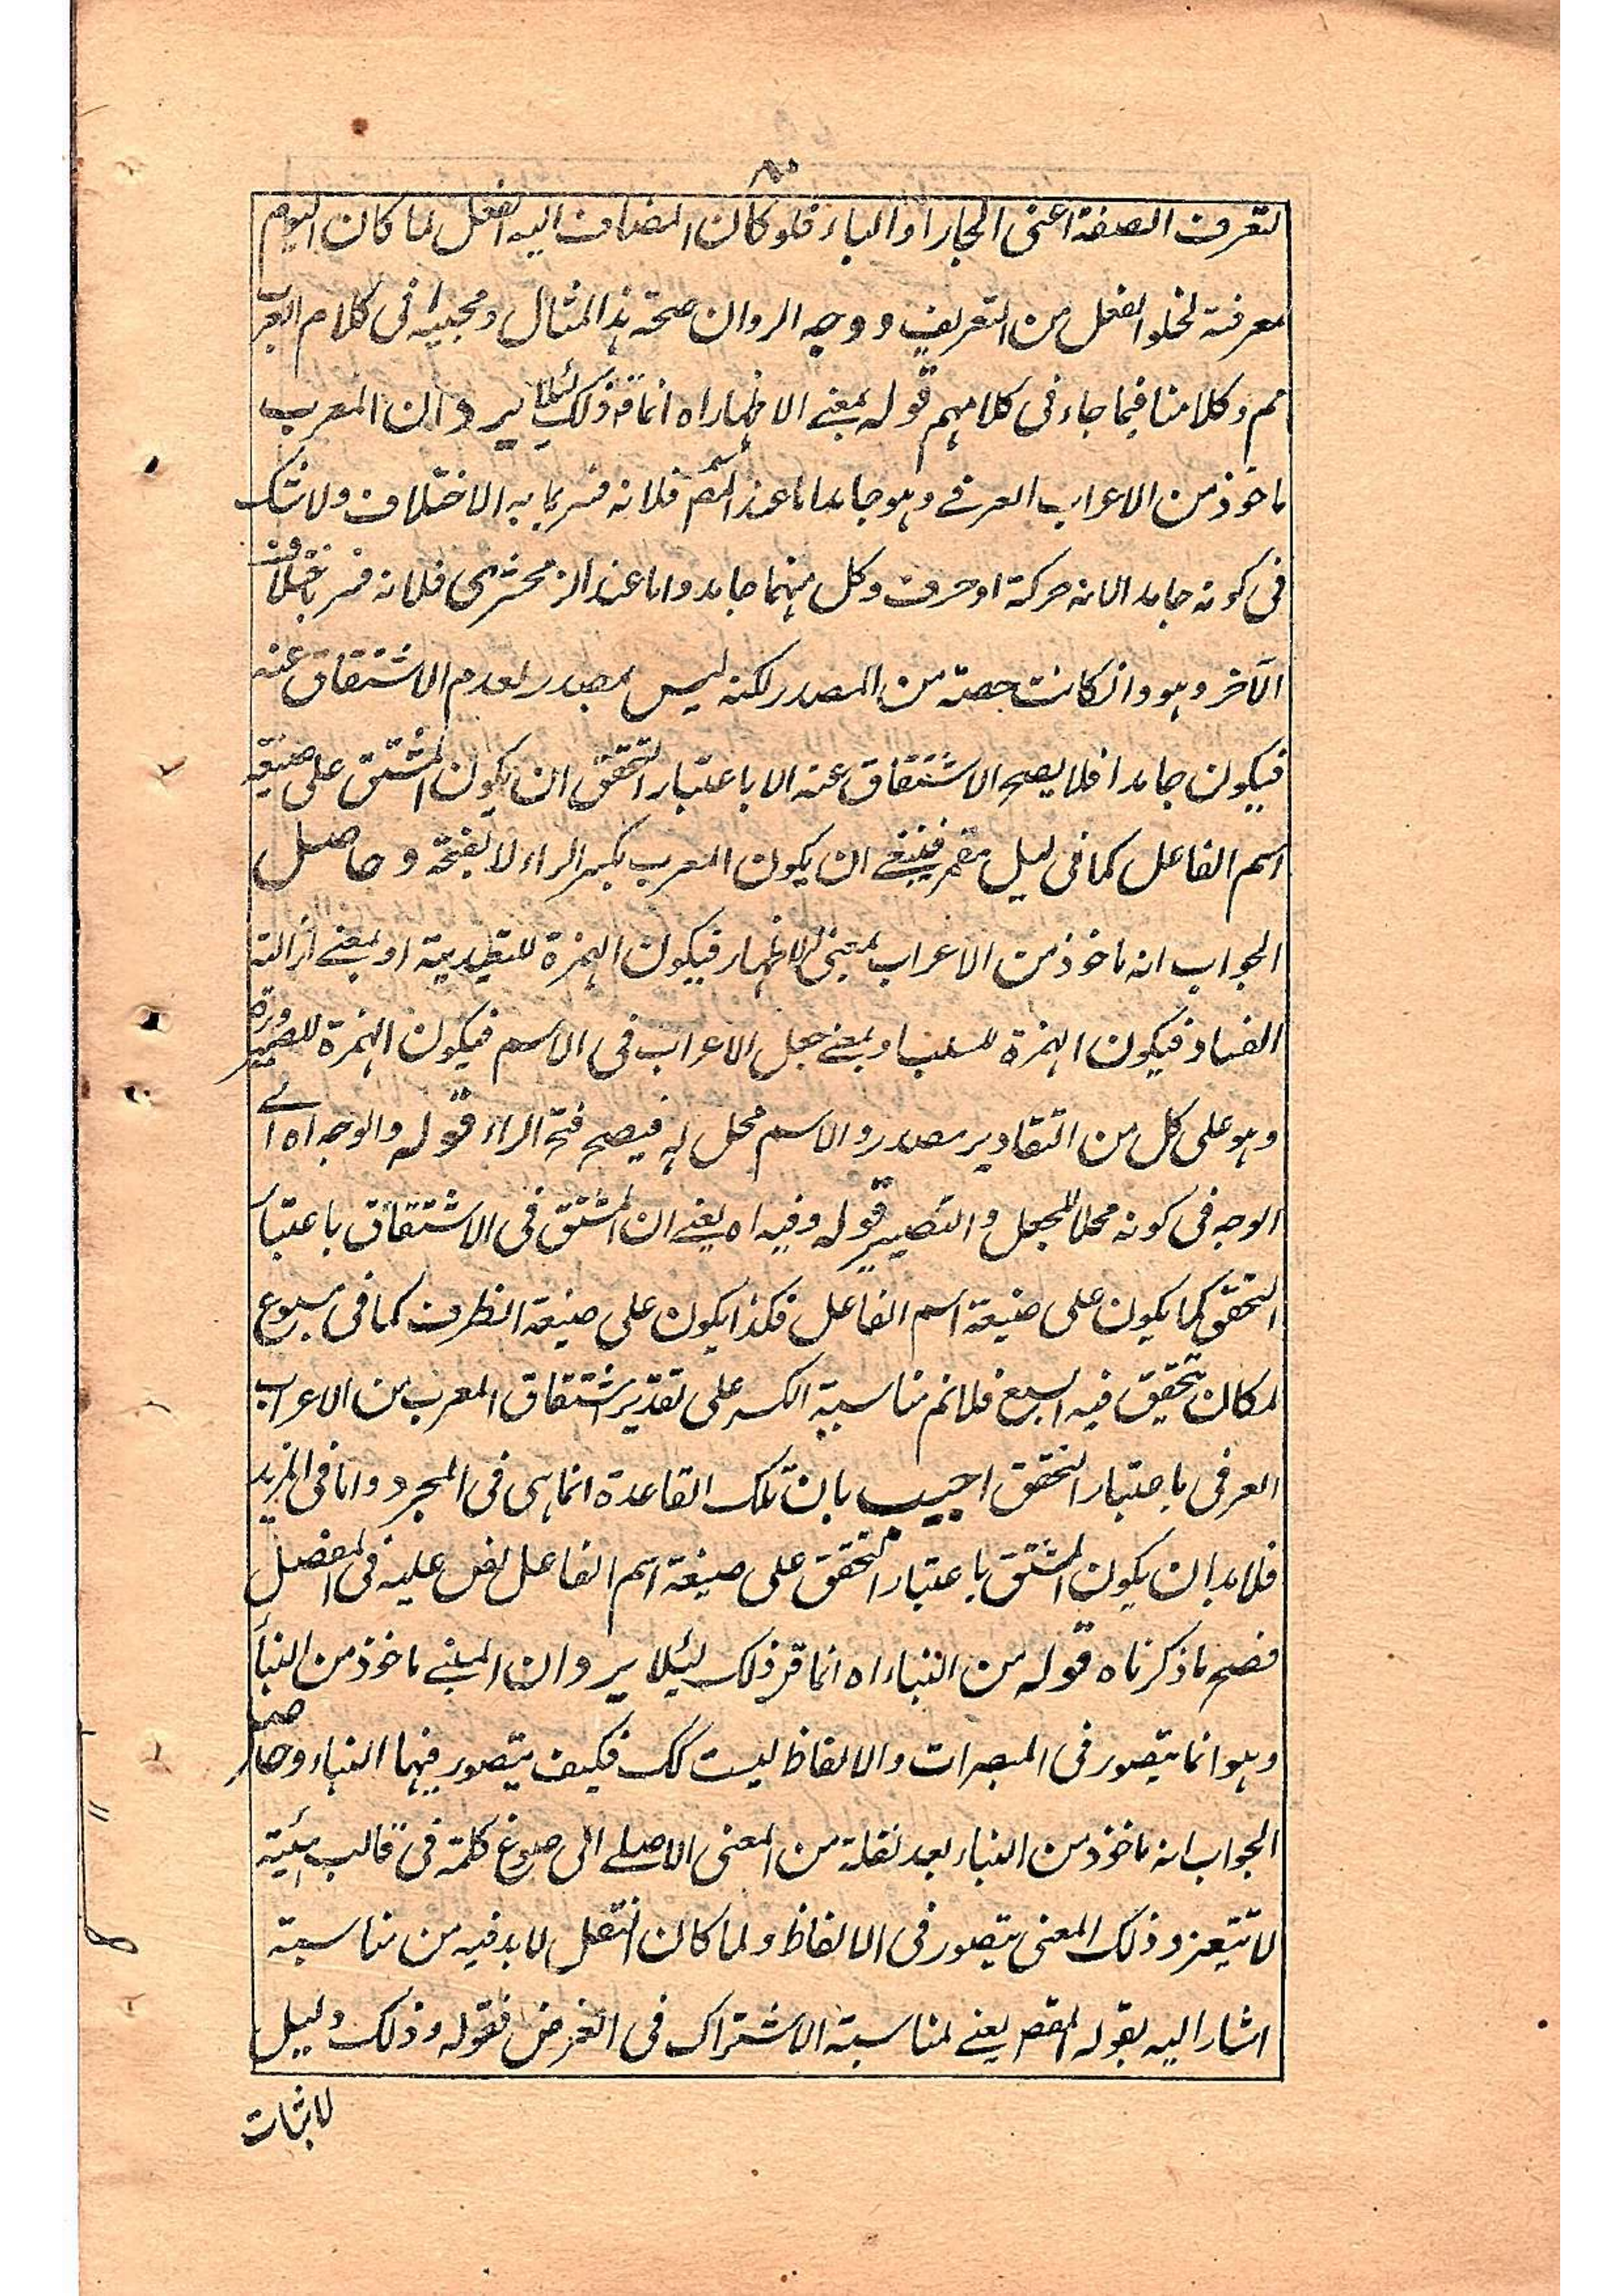 ۸۰
لتعرف الصفة اعنى الجار او الباء فلو كان المضاف اليه الفعل لما كان اليوم
معرفة لخلو الفعل من التعريف ووجه الرد ان صحة هذا المثال ومجيئه فى كلام العرب
مم وكلامنا فيما جاء فى كلامهم قوله بمعنے الاظهار اه انما قرر ذلك لئلا يرد ان المعرب
ماخوذ من الاعراب العرفے وهو جامد اما عند المصم فلانه فسر بما به الاختلاف ولا شك
فى كونه جامدا لانه حركة او حرف وكل منهما جامد واما عند الزمخشرى فلانه فسر باختلاف
الآخر وهو وانكانت حصة من المصدر لكنه ليس بمصدر لعدم الاشتقاق عنه
فيكون جامدا فلا يصح الاشتقاق عنه الا باعتبار التحقق ان يكون المشتق على صيغة
اسم الفاعل كما فى ليل مقمر فينبغے ان يكون المعرب بكسر الراء لا بفتحه وحاصل
الجواب انه ماخوذ من الاعراب بمعنى الاظهار فيكون الهمزة للتعدية او بمعنے ازالة
الفساد فيكون الهمزة للسلب او بمعنے جعل الاعراب فى الاسم فيكون الهمزة للصيرورة
وهو على كل من التقادير مصدر والاسم محل له فيصح فتح الراء قوله والوجه اه اے
الوجه فى كونه محلا للجعل والتصيير قوله وفيه اه يعنے ان المشتق فى الاشتقاق باعتبار
التحقق كما يكون على صيغة اسم الفاعل فكذا يكون على صيغة الظرف كما فى مسبوع
لمكان تحقيق فيه السبع فلانم مناسبة الكسر على تقدير اشتقاق المعرب من الاعراب
العرفى باعتبار التحقق اجيب بان تلك القاعدة انما هى فى المجرد واما فى المزيد
فلا بد ان يكون المشتق باعتبار التحقق على صيغة اسم الفاعل نص عليه فى المفصل
فصح ما ذكرناه قوله من البناء اه انما قرر ذلك لئلا يرد ان المبنے ماخوذ من البناء
وهو انما يتصور فى المبصرات والالفاظ ليست كك فكيف يتصور فيها البناء وحاصل
الجواب انه ماخوذ من البناء بعد نقله من المعنى الاصلے الى صوغ كلمة فى قالب هيئة
لا تتغير وذلك المعنى يتصور فى الالفاظ ولما كان النقل لا بد فيه من مناسبة
اشار اليه بقوله المقص يعنے لمناسبة الاشتراك فى الغرض فقوله وذلك دليل
لاثبات